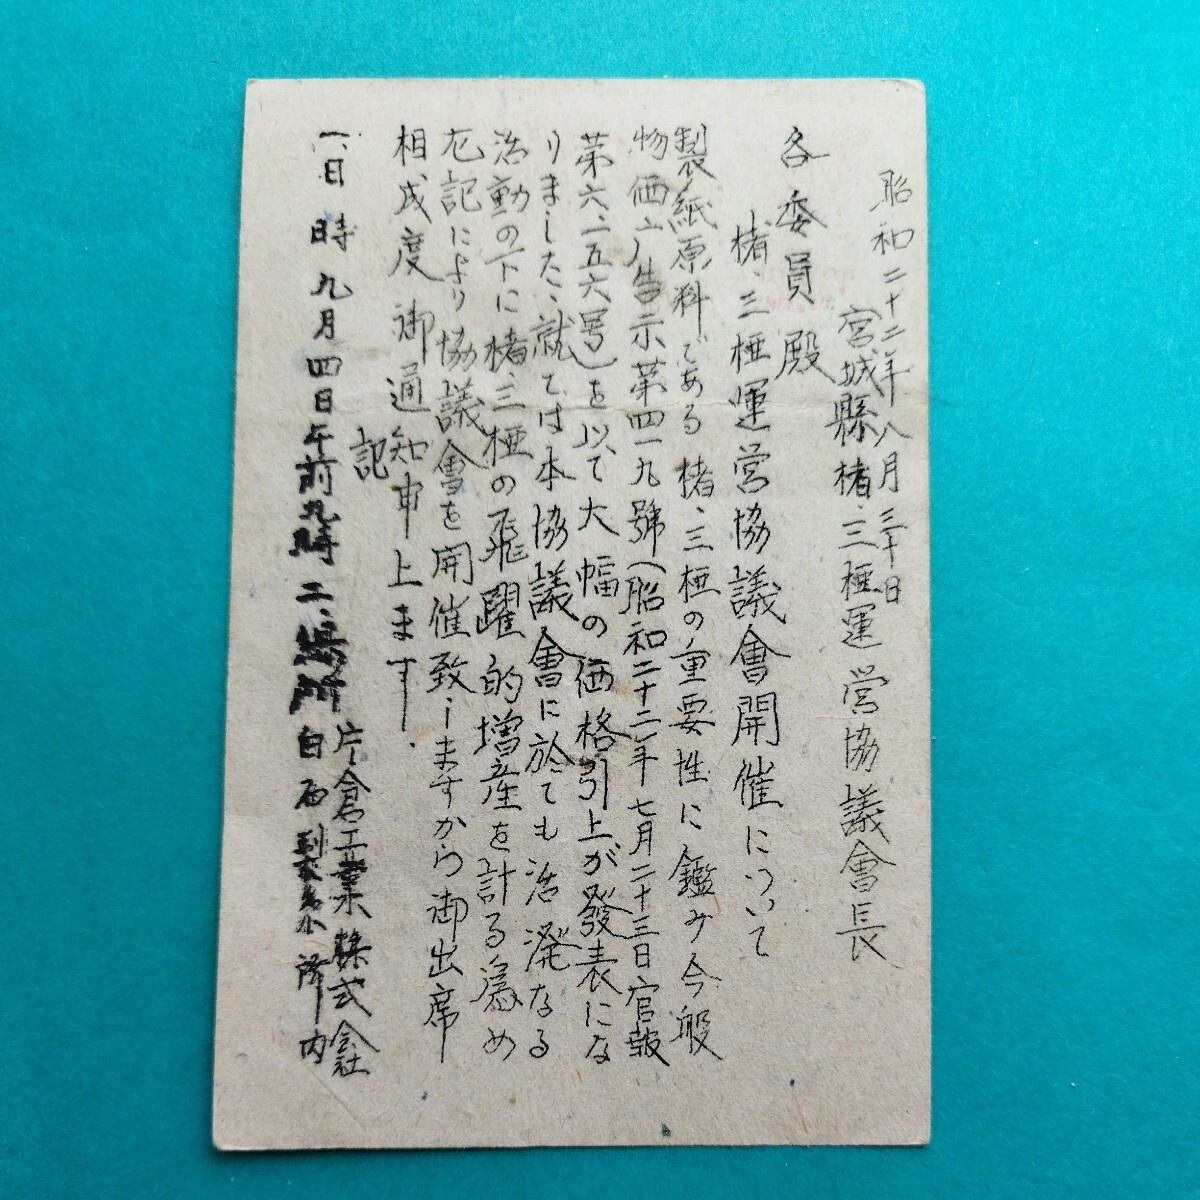 昭和二十二年八月三十日
宮城縣楮、三椏運営協議會長
各委員殿
楮、三椏運営協議會開催について
製紙原料である楮、三椏の重要性に鑑み今般
物価庁告示第四一九號(昭和二十二年七月二十三日官報
第六、一五六号)を以て大幅の価格引上が發表にな
りました、就ては本協議會に於ても活潑なる
活動の下に楮、三椏の飛躍的増産を計る為め
左記により協議會を開催致しますから御出席
相成度御通知申上ます.
記
一、日時 九月四日午前九時 二、場所 片倉工業株式会社
白石製糸所内